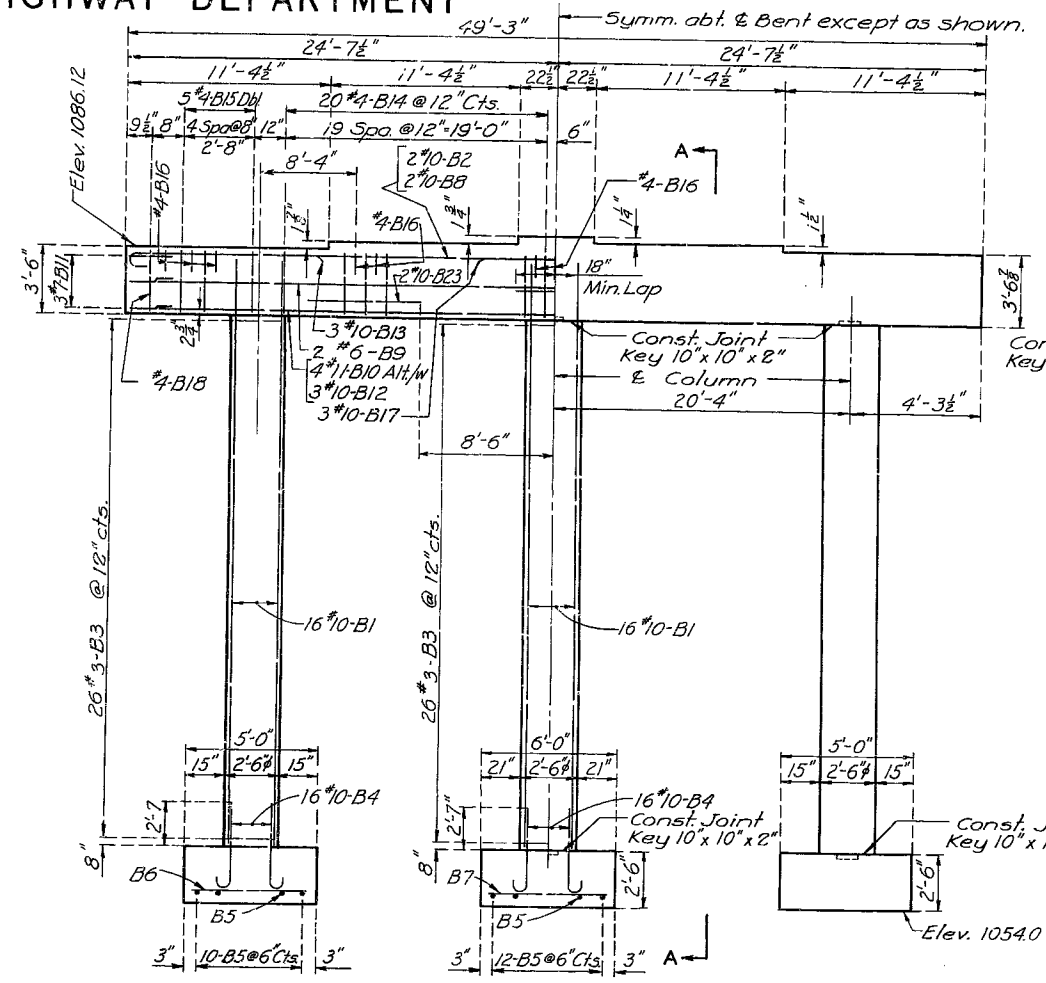 HIGHWAY DEPARTMENT
49'-3"
Symm. abt. ℄ Bent except as shown.
24'-7½"
24'-7½"
11'-4½"
11'-4½"
22½"
22½"
11'-4½"
11'-4½"
5 #4-B15 Dbl.
20 #4-B14 @ 12" Cts.
9½"
8"
4 Spa @ 8"
12"
19 Spa. @ 12"=19'-0"
6"
2'-8"
A
Elev. 1086.12
#4-B16
8'-4"
2 #10-B2
2 #10-B8
#4-B16
#4-B16
1¾"
1¼"
1½"
3'-6"
3 #7-B11
2 #10-B23
18"
Min. Lap
2¾"
3 #10-B13
2 #6-B9
4 #11-B10 Alt./w
3 #10-B12
3 #10-B17
#4-B18
Const. Joint
Key 10" x 10" x 2"
℄ Column
20'-4"
4'-3½"
Con
Key
8'-6"
26 #3-B3 @ 12" cts.
26 #3-B3 @ 12" cts.
16 #10-B1
16 #10-B1
5'-0"
15"
2'-6"φ
15"
6'-0"
21"
2'-6"φ
21"
5'-0"
15"
2'-6"φ
15"
2'-7
16 #10-B4
2'-7"
16 #10-B4
Const. Joint
Key 10" x 10" x 2"
Const. J
Key 10" x 1
8"
8"
B6
B5
B7
B5
2'-6"
2'-6"
Elev. 1054.0
3"
10-B5 @ 6" Cts.
3"
3"
12-B5 @ 6" Cts.
3"
A